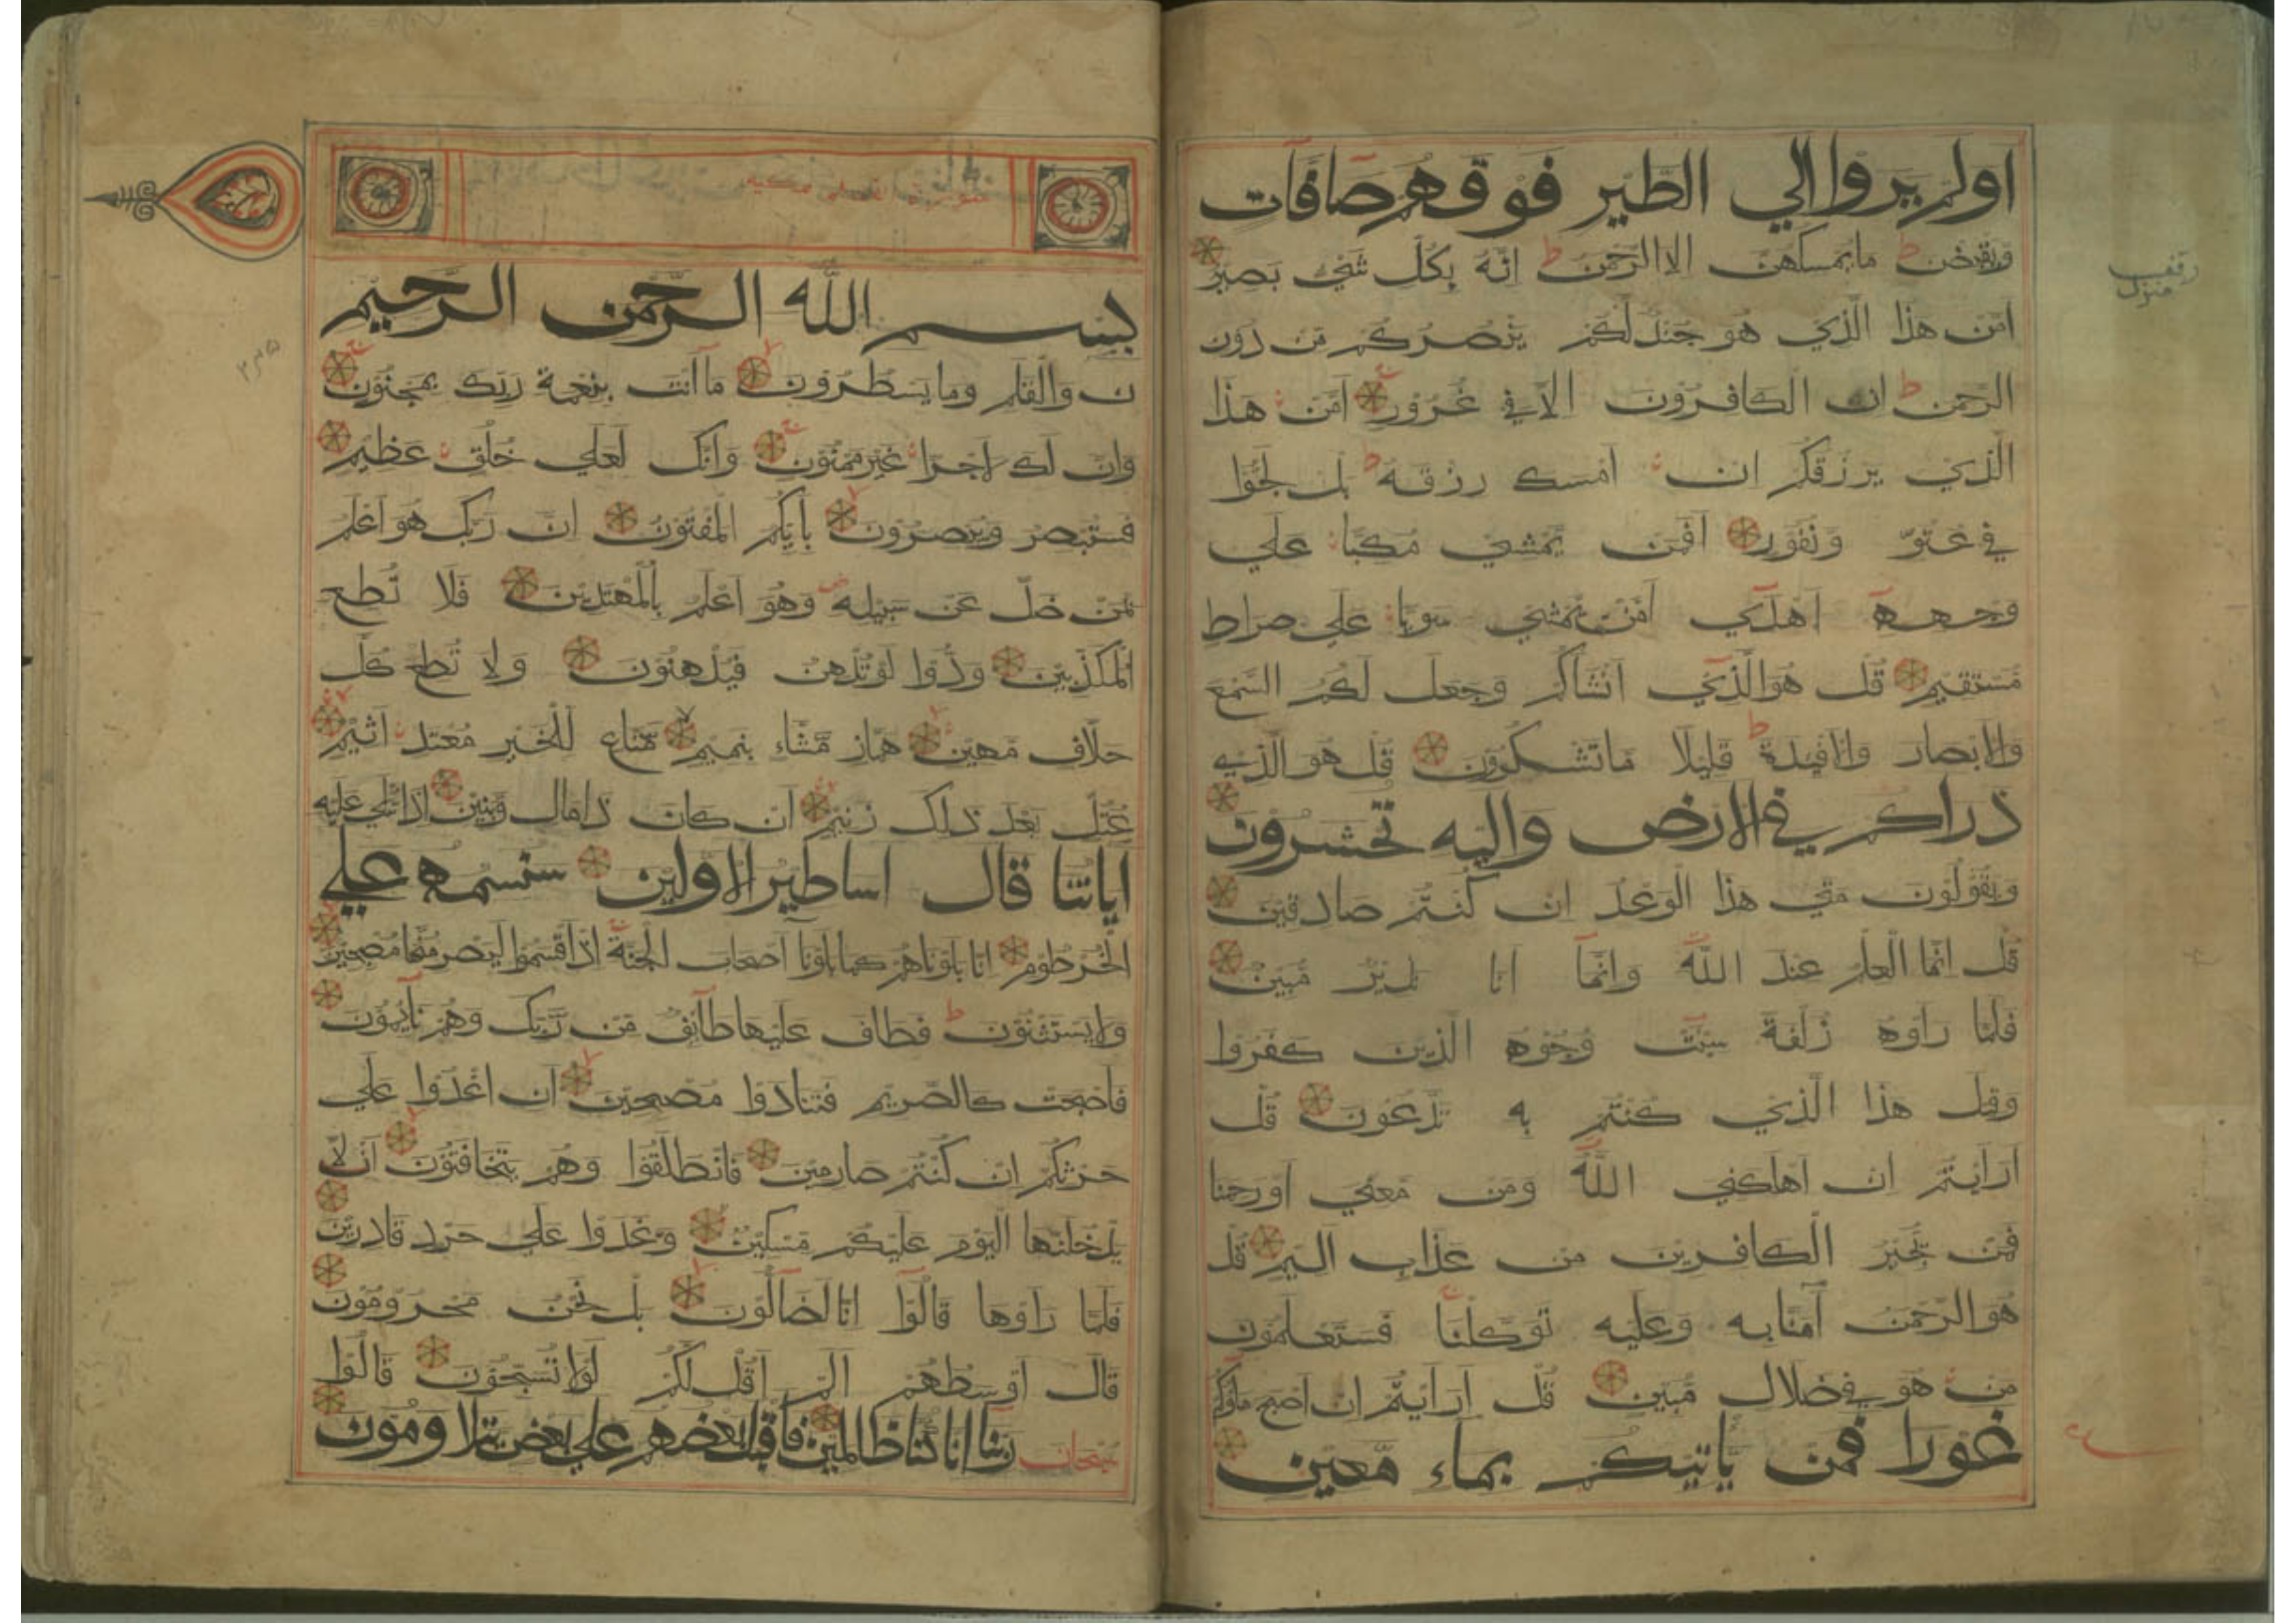 اولم يروا الي الطير فوقهم صافات
ويقبضن ما يمسكهن الا الرحمن انه بكل شئ بصير
امن هذا الذي هو جند لكم ينصركم من دون
الرحمن ان الكافرون الا في غرور امن هذا
الذي يرزقكم ان امسك رزقه بل لجوا
في عتو ونفور افمن يمشي مكبا علي
وجهه اهدي امن يمشي سويا علي صراط
مستقيم قل هو الذي انشاكم وجعل لكم السمع
والابصار والافيدة قليلا ما تشكرون قل هو الذي
ذراكم في الارض واليه تحشرون
ويقولون متي هذا الوعد ان كنتم صادقين
قل انما العلم عند الله وانما انا نذير مبين
فلما راوه زلفة سيئت وجوه الذين كفروا
وقيل هذا الذي كنتم به تدعون قل
ارايتم ان اهلكني الله ومن معي او رحمنا
فمن يجير الكافرين من عذاب اليم قل
هو الرحمن آمنا به وعليه توكلنا فستعلمون
من هو في ضلال مبين قل ارايتم ان اصبح ماؤكم
غورا فمن ياتيكم بماء معين
منزل
سورة القلم مكية
بسم الله الرحمن الرحيم
ن والقلم وما يسطرون ما انت بنعمة ربك بمجنون
وان لك لاجرا غير ممنون وانك لعلي خلق عظيم
فستبصر ويبصرون بأيكم المفتون ان ربك هو اعلم
بمن ضل عن سبيله وهو اعلم بالمهتدين فلا تطع
المكذبين ودوا لو تدهن فيدهنون ولا تطع كل
حلاف مهين هماز مشاء بنميم مناع للخير معتد اثيم
عتل بعد ذلك زنيم ان كان ذا مال وبنين اذا تتلي عليه
اياتنا قال اساطير الاولين سنسمه علي
الخرطوم انا بلوناهم كما بلونا اصحاب الجنة اذ اقسموا ليصرمنها مصبحين
ولا يستثنون فطاف عليها طآئف من ربك وهم نآيمون
فاصبحت كالصريم فتنادوا مصبحين ان اغدوا علي
حرثكم ان كنتم صارمين فانطلقوا وهم يتخافتون ان لا
يدخلنها اليوم عليكم مسكين وغدوا علي حرد قادرين
فلما راوها قالوا انا لضالون بل نحن محرومون
قال اوسطهم الم اقل لكم لولا تسبحون قالوا
سبحان ربنا انا كنا ظالمين فاقبل بعضهم علي بعض يتلاومون